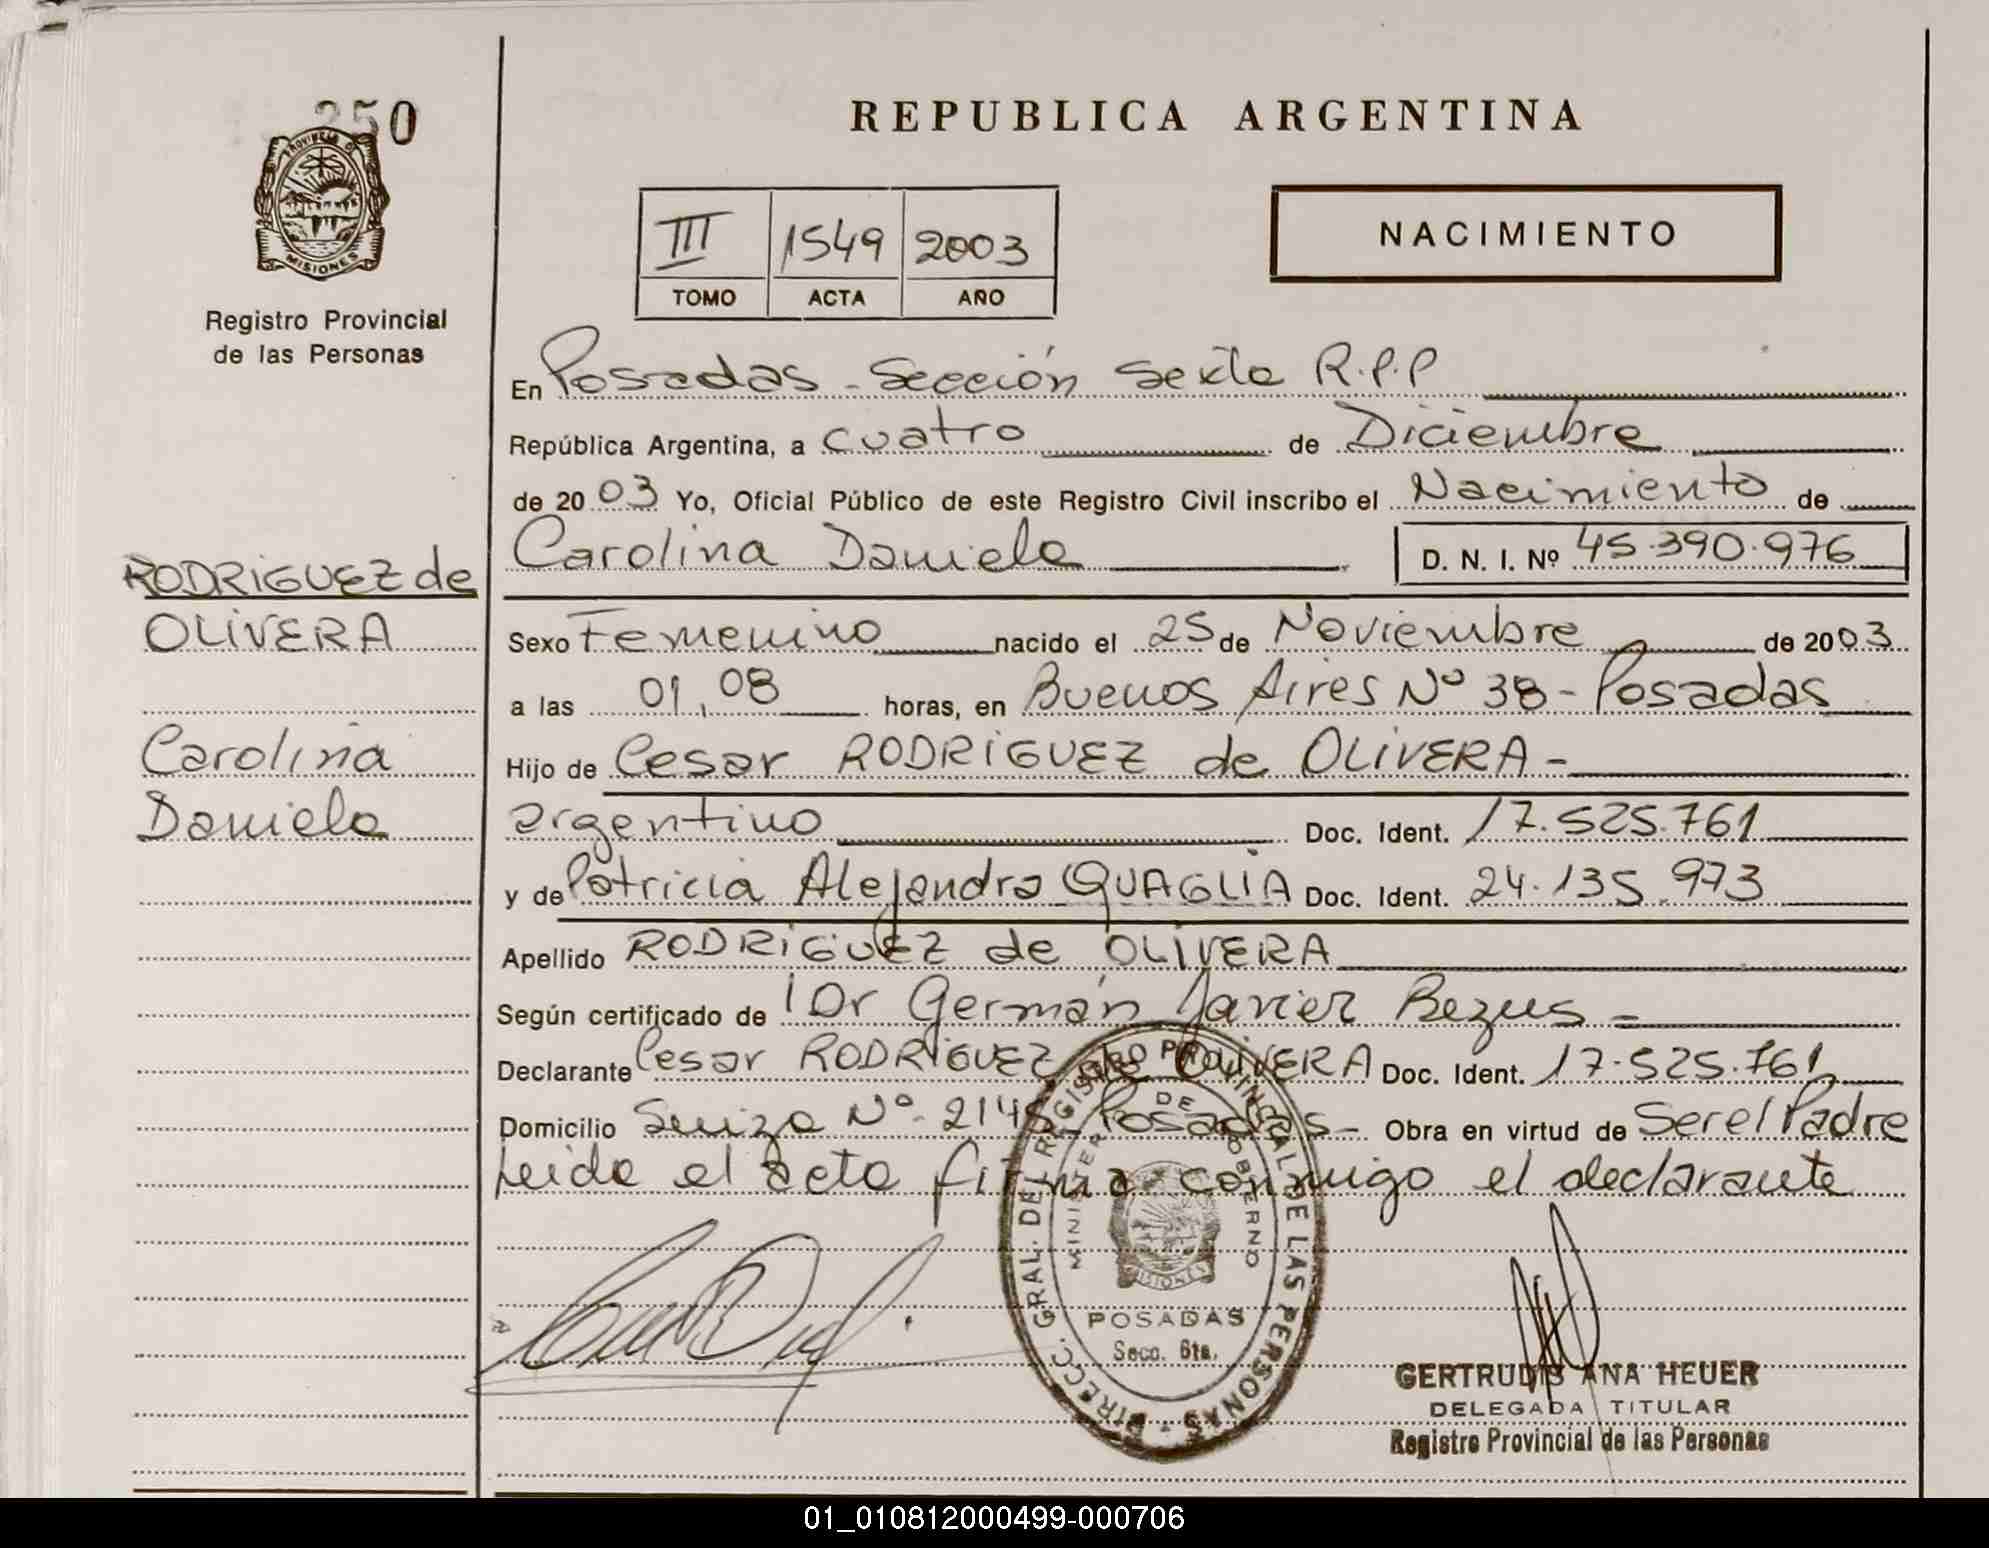 250
PROVINCIA DE
MISIONES
Registro Provincial
de las Personas
RODRIGUEZ de
OLIVERA
Carolina
Daniela
REPUBLICA ARGENTINA
III 1549 2003
TOMO ACTA AÑO
NACIMIENTO
En Posadas - Sección Sexta R.P.P
República Argentina, a cuatro de Diciembre
de 2003 Yo, Oficial Público de este Registro Civil inscribo el Nacimiento de
Carolina Daniela D. N. I. Nº 45.390.976
Sexo Femenino nacido el 25 de Noviembre de 2003
a las 01,08 horas, en Buenos Aires Nº 38 - Posadas
Hijo de Cesar RODRIGUEZ de OLIVERA -
argentino Doc. Ident. 17.525.761
y de Patricia Alejandra QUAGLIA Doc. Ident. 24.135.973
Apellido RODRIGUEZ de OLIVERA
Según certificado de Dr Germán Javier Bezus -
Declarante Cesar RODRIGUEZ de OLIVERA Doc. Ident. 17.525.761
Domicilio Suiza Nº 2145 - Posadas - Obra en virtud de Ser el Padre
Leida el acta firma conmigo el declarante
DIRECC. GRAL. DEL REGISTRO PROVINCIAL DE LAS PERSONAS
MINISTERIO DE GOBIERNO
MISIONES
POSADAS
Secc. 6ta.
GERTRUDIS ANA HEUER
DELEGADA TITULAR
Registro Provincial de las Personas
01_010812000499-000706